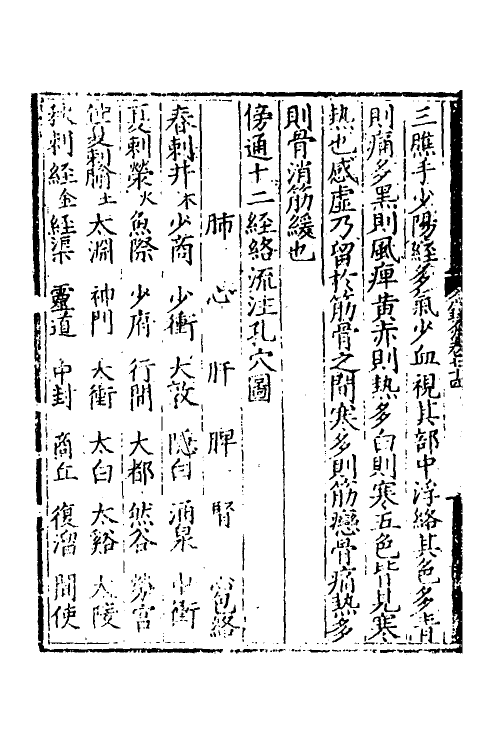 三膲手少陽經多氣少血視其部中浮絡其色多青
則痛多黑則風痺黄赤則热多白則寒五色皆見寒
热也感虛乃留於筋骨之間寒多則筋攣骨痛热多
則骨消筋緩也
傍通十二經絡流注孔穴圖
肺 心 肝 脾 腎 心包絡
春刺井木 少商 少衝 大敦 隱白 涌泉 中衝
夏刺榮火 魚際 少府 行間 大都 然谷 勞宮
季夏刺腧土 太淵 神門 太衝 太白 太谿 大陵
秋刺經金 經渠 靈道 中封 商丘 復溜 間使